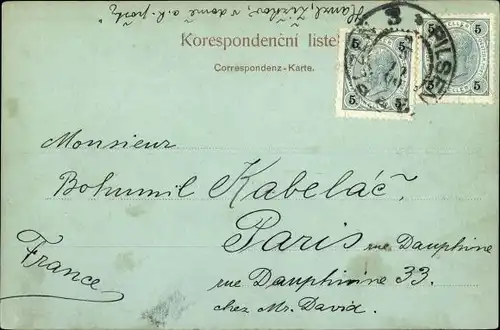 Hanzl, Žižkov, v domě c. k. pošty
Korespondenční listek
Correspondenz-Karte.
5 5 5 5
PILSEN
PLZEŇ
3
Monsieur
Bohumil Kabeláč.
Paris rue Dauphine
France
rue Dauphinine 33.
chez Mr. David.